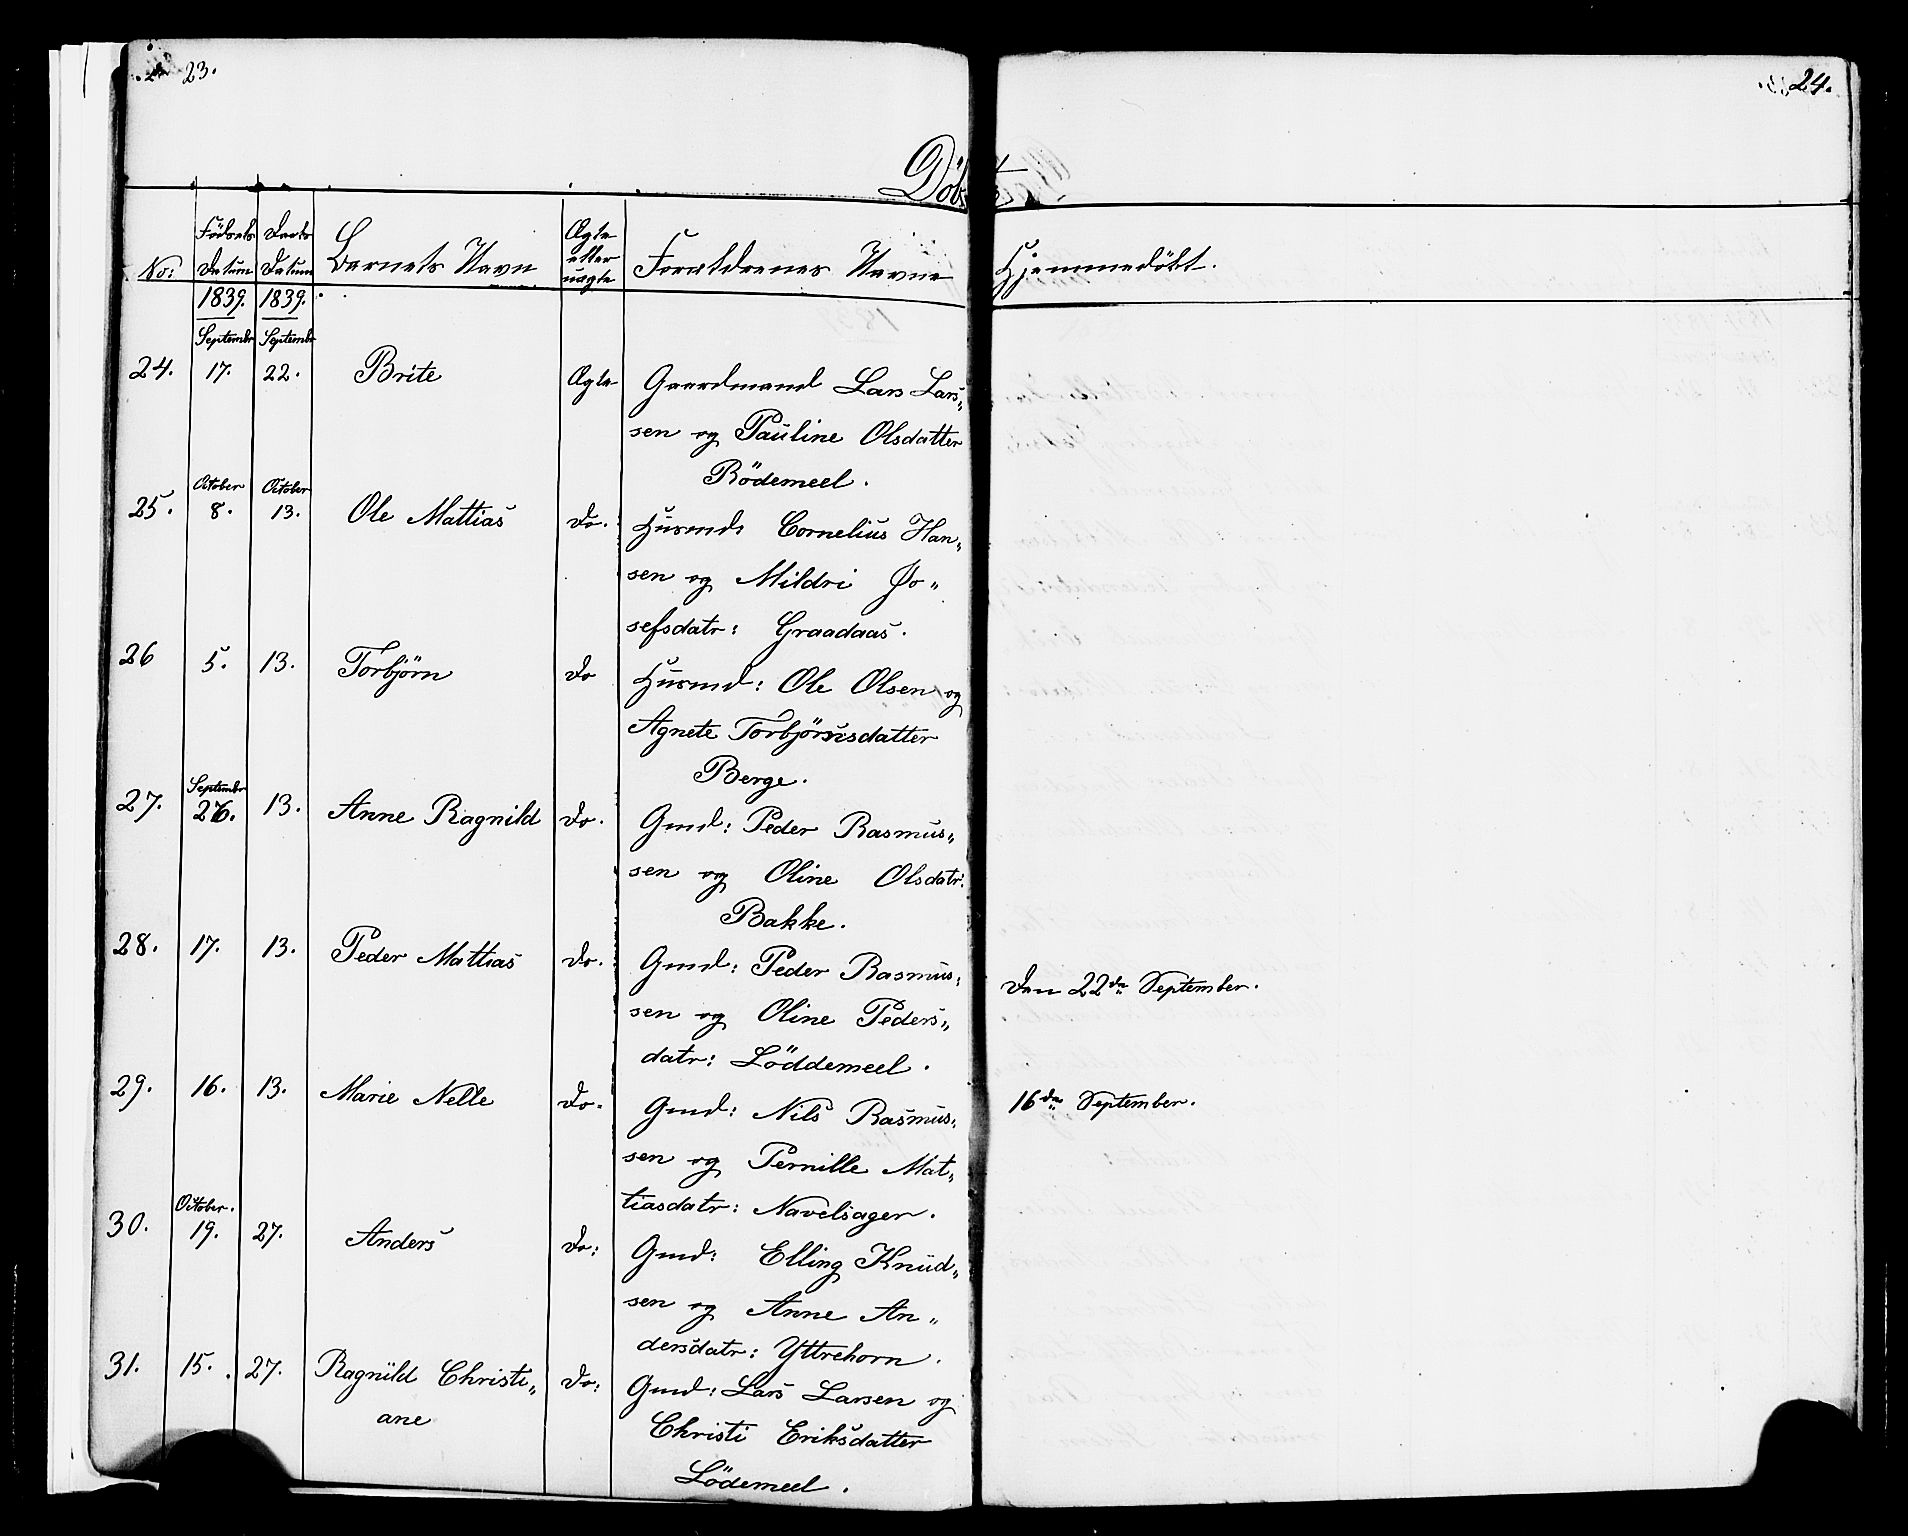 23.
24.
Döbte
No: Födsels Datum Daabs Datum Barnets Navn Ægte eller uægte Forældrenes Navne Hjemmedöbt.
1839. 1839.
Septembr Septembr
24. 17. 22. Brite Ægte Gaardmand Lars Lars„
sen og Pauline Olsdatter
Rödemeel.
October October
25. 8. 13. Ole Mattias Do. Husmds Cornelius Han„
sen og Mildri Jo„
sefsdatr: Graadaas.
26 5. 13. Torbjørn Do Husmd: Ole Olsen og
Agnete Torbjörnsdatter
Berge.
Septembr
27. 26. 13. Anne Ragnild Do. Gmd: Peder Rasmus„
sen og Oline Olsdatr.
Bakke.
28. 17. 13. Peder Mattias Do. Gmd: Peder Rasmus„ Den 22de September.
sen og Oline Peders„
datr: Löddemeel.
29. 16. 13. Marie Nelle Do. Gmd: Nils Rasmus„ 16de September.
sen og Pernille Mat„
tiasdatr: Navelsager.
October.
30. 19. 27. Anders Do: Gmd: Elling Knud„
sen og Anne An„
dersdatr: Yttrehorn.
31. 15. 27. Ragnild Christi„ Do: Gmd: Lars Larsen og
ane Christi Eriksdatter
Lödemeel.